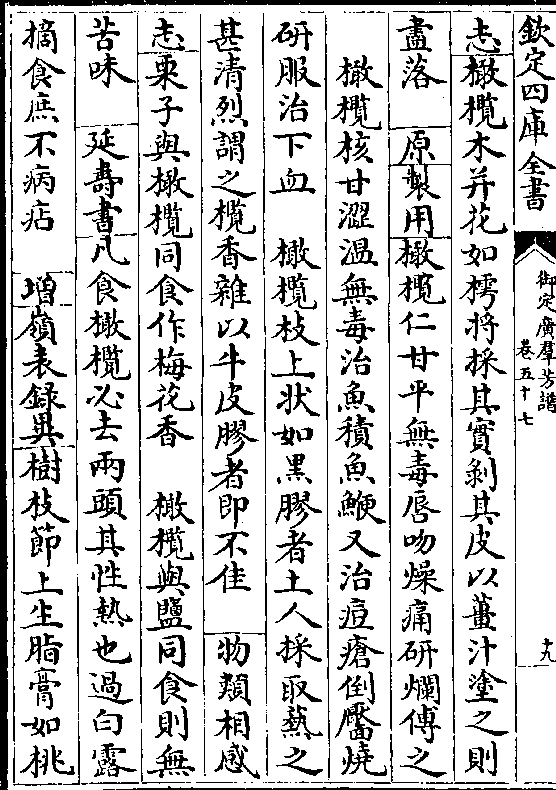 欽定四庫全書
御定廣羣芳譜
卷五十七
十九
志橄欖木并花如樗將採其實剝其皮以薑汁塗之則
盡落　原製用橄欖仁甘平無毒唇吻燥痛研爛傅之
橄欖核甘澀温無毒治魚積魚鯁又治痘瘡倒黶燒
研服治下血　橄欖枝上狀如黑膠者土人採取爇之
甚清烈謂之欖香雜以牛皮膠者即不佳　物類相感
志栗子與橄欖同食作梅花香　橄欖與鹽同食則無
苦味　延壽書凡食橄欖必去兩頭其性熱也過白露
摘食庶不病痁　增嶺表錄異樹枝節上生脂膏如桃